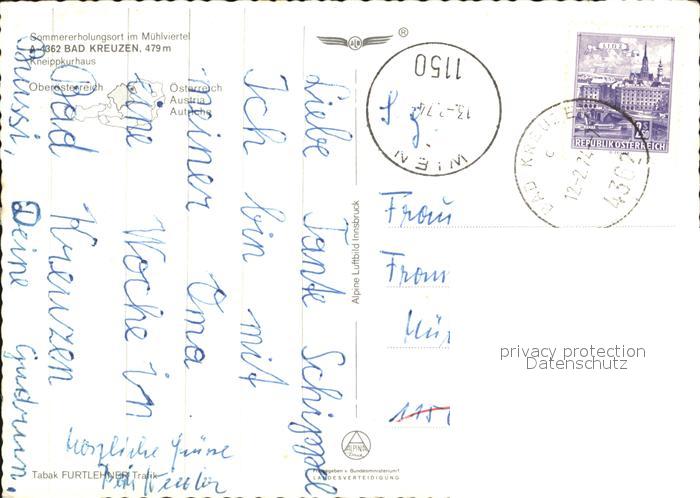 Sommererholungsort im Mühlviertel
A-4362 BAD KREUZEN, 479 m
Kneippkurhaus
Oberösterreich
Österreich
Austria
Autriche
Liebe Tante Schipper
Ich bin mit
meiner Oma
eine Woche in
Bad Kreuzen
Bussi, Deine Gudrun.
herzliche Grüsse
Tabak FURTLEHNER Trafik
Alpine Luftbild Innsbruck
®
1150
13.2.74
WIEN
LINZ
REPUBLIK ÖSTERREICH
BAD KREUZEN
12.2.74
4362
S. g.
Frau
Frau
115
privacy protection
Datenschutz
ALPINE
Freigegeben v. Bundesministerium f.
LANDESVERTEIDIGUNG